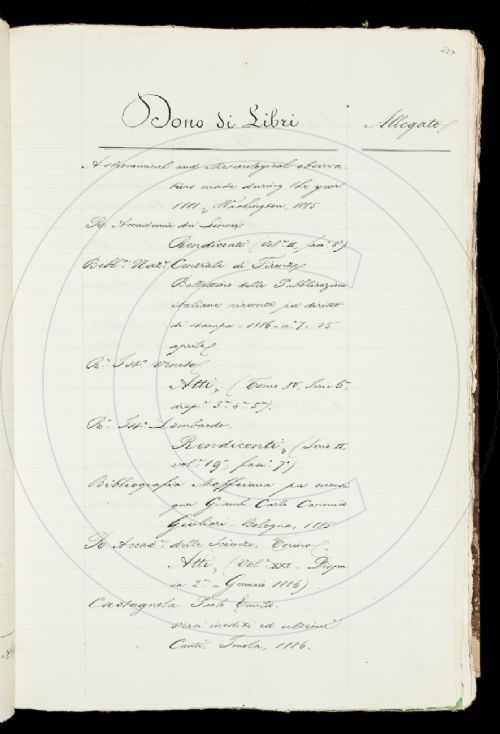 Dono di Libri
Allegato
Astronomical and Meteorological observa-
tions made during the year
1881, Washington, 1885
R. Accademia dei Lincei
Rendiconti (Vol. II, fasc. 8)
Bibl. Naz. Centrale di Firenze
Bollettino delle Pubblicazioni
italiane ricevute per diritto
di stampa - 1886 - n. 7 - 15
aprile
R. Ist. Veneto
Atti, (Tomo IV, Serie 6
disp. 3 4 5).
R. Ist. Lombardo
Rendiconti, (Serie II,
vol. 19, fasc. 7)
Bibliografia Maffeiana per monsi-
gnor Giamb. Carlo Canonico
Giuliari - Bologna, 1885
R. Accad. delle Scienze. Torino
Atti, (Vol. XXI - Dispen-
sa 2 - Gennaio 1886)
Castagnola Paolo Emilio
versi inediti ed
Imola, 1886.